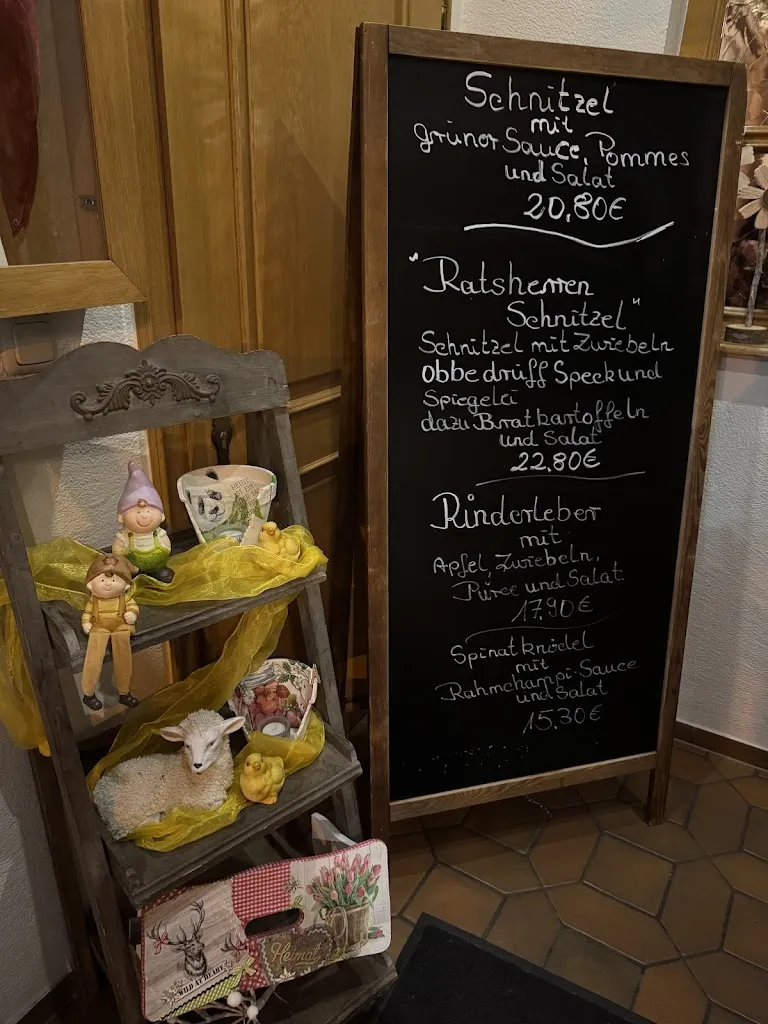 Schnitzel
mit
grüner Sauce, Pommes
und Salat
20,80€
"Ratsherren
Schnitzel"
Schnitzel mit Zwiebeln
obbe drüff Speck und
Spiegelei
dazu Bratkartoffeln
und Salat
22,80€
Rinderleber
mit
Apfel, Zwiebeln,
Püree und Salat
17,90€
Spinatknödel
mit
Rahmchampi-Sauce
und Salat
15,30€
WILD AT HEART
Heimat